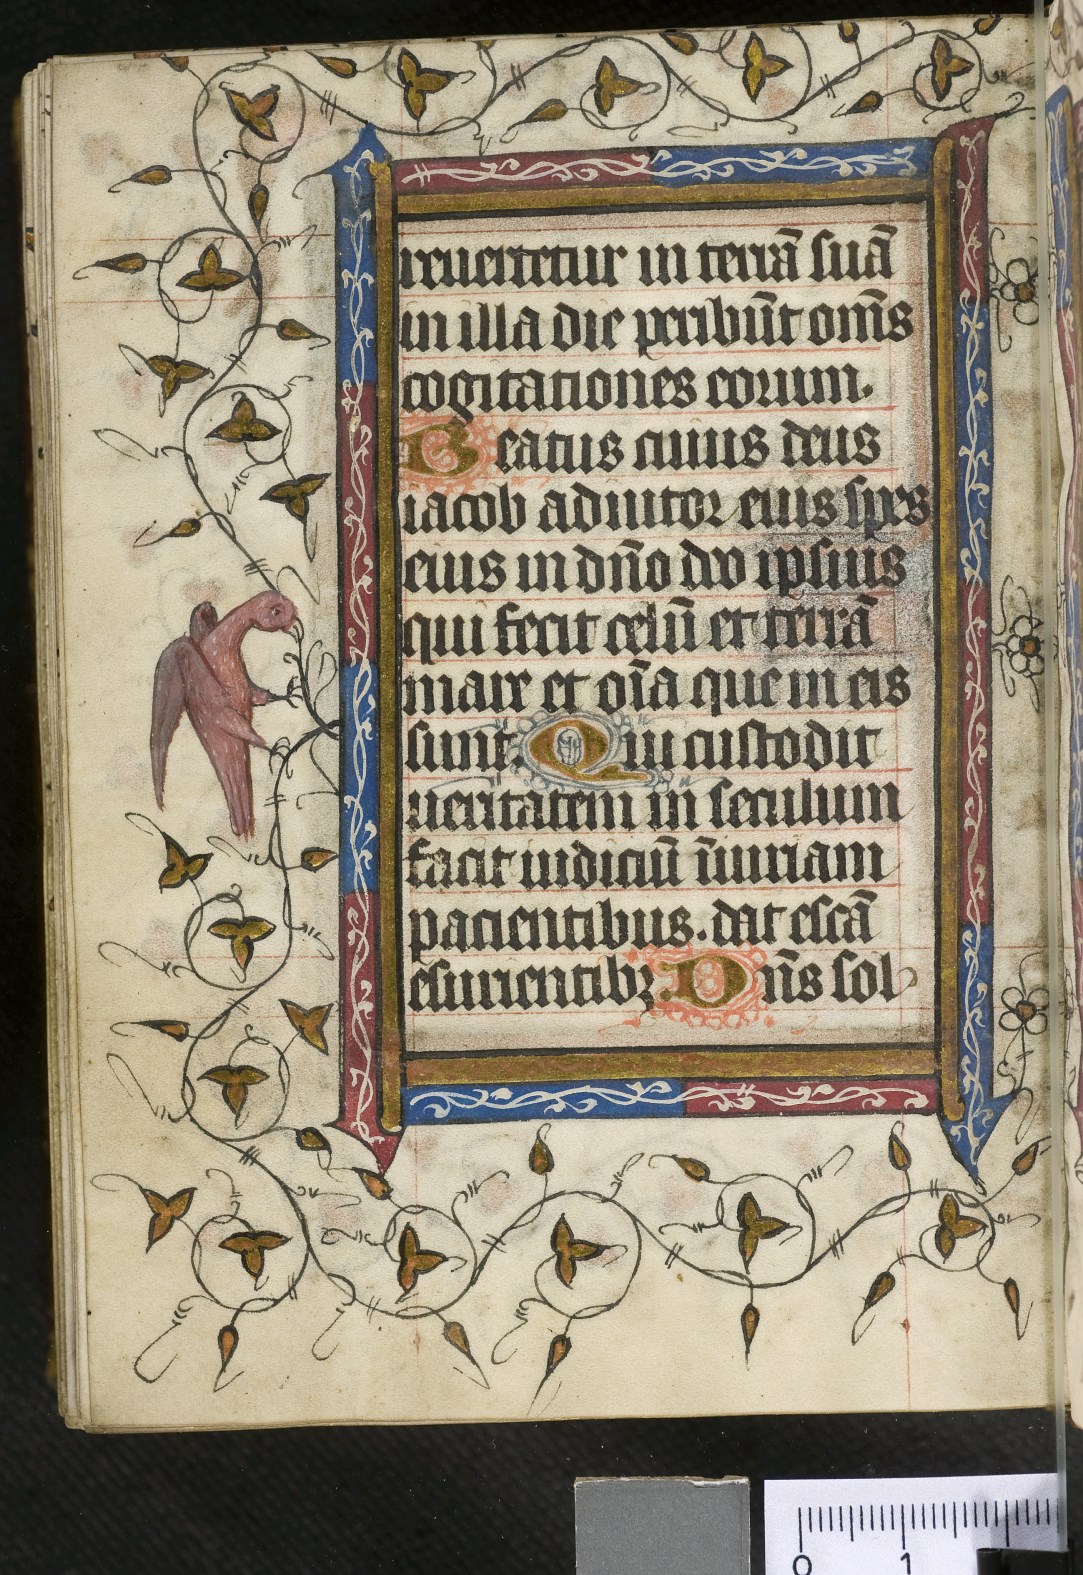 reuertetur in terrā suā
in illa die peribūt om̄s
cogitationes eorum.
Beatus cuius deus
iacob adiutor eius spes
eius in dn̄o dō ipsius
qui fecit celū et terrā
mare et oīa que in eis
sunt. Qui custodit
ueritatem in seculum
facit iudiciū īiuriam
pacientibus. dat escā
esurientibꝫ. Dn̄s sol
0 1